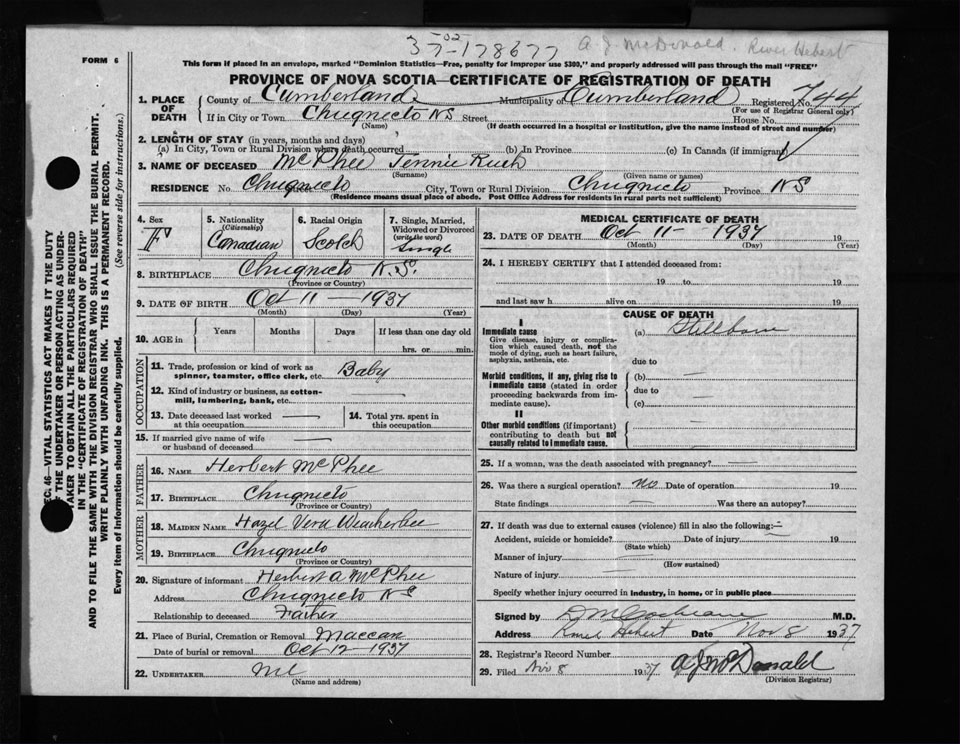 37-02-178677 A. J. McDonald. River Hebert
FORM 6
This form if placed in an envelope, marked "Dominion Statistics—Free, penalty for improper use $300," and properly addressed will pass through the mail "FREE"
PROVINCE OF NOVA SCOTIA—CERTIFICATE OF REGISTRATION OF DEATH
1. PLACE OF DEATH County of Cumberland Municipality of Cumberland Registered No. 744
(For use of Registrar General only)
If in City or Town Chignecto NS Street House No.
(Name) (If death occurred in a hospital or institution, give the name instead of street and number)
2. LENGTH OF STAY (in years, months and days)
(a) In City, Town or Rural Division where death occurred (b) In Province (c) In Canada (if immigrant)
3. NAME OF DECEASED McPhee Jennie Ruth
(Surname) (Given name or names)
RESIDENCE No. Chignecto City, Town or Rural Division Chignecto Province NS
(Residence means usual place of abode. Post Office Address for residents in rural parts not sufficient)
4. Sex F
5. Nationality (Citizenship) Canadian
6. Racial Origin Scotch
7. Single, Married, Widowed or Divorced (write the word) Single
8. BIRTHPLACE Chignecto N.S.
(Province or Country)
9. DATE OF BIRTH Oct 11 — 1937
(Month) (Day) (Year)
10. AGE in Years Months Days If less than one day old
hrs. or min.
OCCUPATION
11. Trade, profession or kind of work as spinner, teamster, office clerk, etc. Baby
12. Kind of industry or business, as cotton-mill, lumbering, bank, etc.
13. Date deceased last worked at this occupation
14. Total yrs. spent in this occupation
15. If married give name of wife or husband of deceased
FATHER
16. NAME Herbert McPhee
17. BIRTHPLACE Chignecto
(Province or Country)
MOTHER
18. MAIDEN NAME Hazel Vera Weatherbee
19. BIRTHPLACE Chignecto
(Province or Country)
20. Signature of informant Herbert A McPhee
Address Chignecto NS
Relationship to deceased Father
21. Place of Burial, Cremation or Removal Maccan
Date of burial or removal Oct 12 - 1937
22. UNDERTAKER
(Name and address)
MEDICAL CERTIFICATE OF DEATH
23. DATE OF DEATH Oct 11 - 1937 19
(Month) (Day) (Year)
24. I HEREBY CERTIFY that I attended deceased from:
19 to 19
and last saw h alive on 19
CAUSE OF DEATH
I
Immediate cause (a) Stillborn
Give disease, injury or complication which caused death, not the mode of dying, such as heart failure, asphyxia, asthenia, etc.
due to
Morbid conditions, if any, giving rise to immediate cause (stated in order proceeding backwards from immediate cause).
(b)
due to
(c)
II
Other morbid conditions (if important) contributing to death but not causally related to immediate cause.
25. If a woman, was the death associated with pregnancy?
26. Was there a surgical operation? no Date of operation 19
State findings Was there an autopsy?
27. If death was due to external causes (violence) fill in also the following:
Accident, suicide or homicide? Date of injury 19
(State which)
Manner of injury
(How sustained)
Nature of injury
Specify whether injury occurred in industry, in home, or in public place
Signed by D M Cochrane M.D.
Address River Hebert Date Nov 8 1937
28. Registrar's Record Number
29. Filed Nov 8 1937 A J McDonald
(Division Registrar)
SEC. 46—VITAL STATISTICS ACT MAKES IT THE DUTY
OF THE UNDERTAKER OR PERSON ACTING AS UNDER-
TAKER TO OBTAIN ALL THE PARTICULARS REQUIRED
IN THE "CERTIFICATE OF REGISTRATION OF DEATH"
AND TO FILE THE SAME WITH THE DIVISION REGISTRAR WHO SHALL ISSUE THE BURIAL PERMIT.
WRITE PLAINLY WITH UNFADING INK. THIS IS A PERMANENT RECORD.
Every item of Information should be carefully supplied. (See reverse side for instructions.)